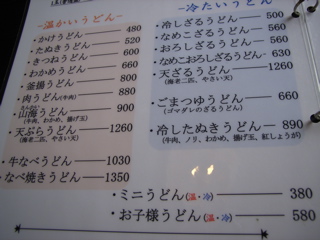 -温かいうどん-
・かけうどん 480
・たぬきうどん 520
・きつねうどん 600
・わかめうどん 660
・釜揚うどん 800
・肉うどん(牛肉) 880
・山海うどん 900
(牛肉、わかめ、揚げ玉)
・天ぷらうどん 1260
(海老二匹、やさい天)
・牛なべうどん 1030
・なべ焼きうどん 1350
-冷たいうどん-
・冷しざるうどん 500
・なめこざるうどん 560
・おろしざるうどん 560
・なめこおろしざるうどん 630
・天ざるうどん 1260
(海老二匹、やさい天)
・ごまつゆうどん 660
(ゴマダレのざるうどん)
・冷したぬきうどん 890
(牛肉、ノリ、わかめ、揚げ玉、紅しょうが)
・ミニうどん(温・冷) 380
・お子様うどん(温・冷) 580